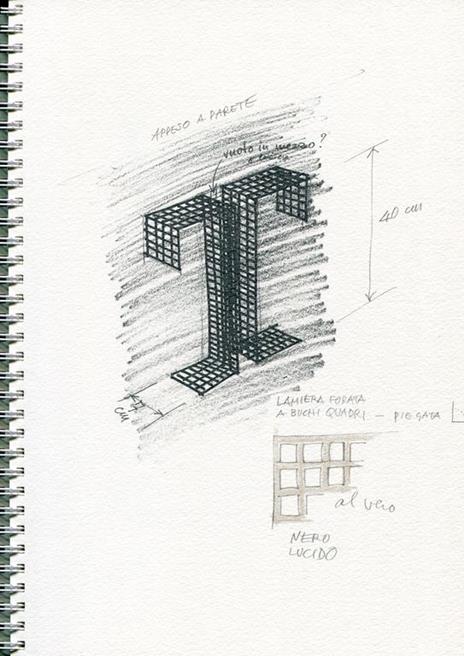 APPESO A PARETE
vuoto in mezzo?
40 cm
cm
LAMIERA FORATA
A BUCHI QUADRI — PIEGATA
al vero
NERO
LUCIDO